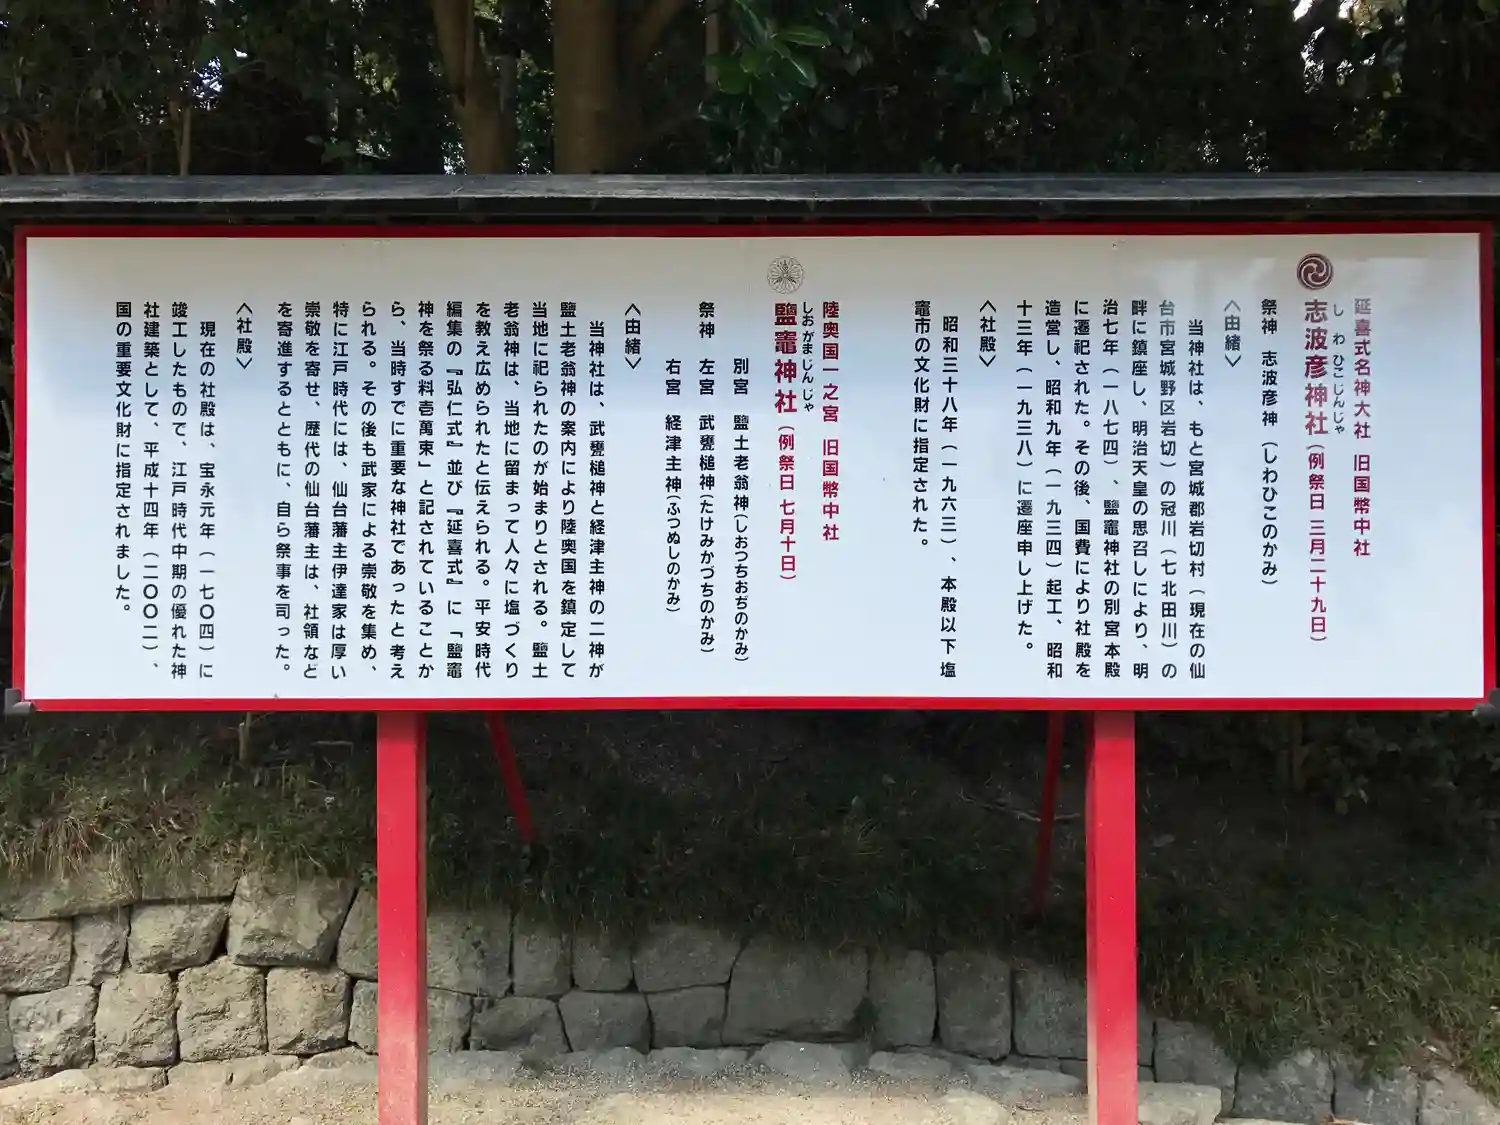 延喜式名神大社 旧国幣中社
志波彦神社(例祭日 三月二十九日)
しわひこじんじゃ
祭神 志波彦神(しわひこのかみ)
〈由緒〉
当神社は、もと宮城郡岩切村(現在の仙
台市宮城野区岩切)の冠川(七北田川)の
畔に鎮座し、明治天皇の思召しにより、明
治七年(一八七四)、鹽竈神社の別宮本殿
に遷祀された。その後、国費により社殿を
造営し、昭和九年(一九三四)起工、昭和
十三年(一九三八)に遷座申し上げた。
〈社殿〉
昭和三十八年(一九六三)、本殿以下塩
竈市の文化財に指定された。
陸奥国一之宮 旧国幣中社
鹽竈神社(例祭日 七月十日)
しおがまじんじゃ
別宮 鹽土老翁神(しおつちおぢのかみ)
祭神 左宮 武甕槌神(たけみかづちのかみ)
右宮 経津主神(ふつぬしのかみ)
〈由緒〉
当神社は、武甕槌神と経津主神の二神が
鹽土老翁神の案内により陸奥国を鎮定して
当地に祀られたのが始まりとされる。鹽土
老翁神は、当地に留まって人々に塩づくり
を教え広められたと伝えられる。平安時代
編集の『弘仁式』並び『延喜式』に「鹽竈
神を祭る料壱萬束」と記されていることか
ら、当時すでに重要な神社であったと考え
られる。その後も武家による崇敬を集め、
特に江戸時代には、仙台藩主伊達家は厚い
崇敬を寄せ、歴代の仙台藩主は、社領など
を寄進するとともに、自ら祭事を司った。
〈社殿〉
現在の社殿は、宝永元年(一七〇四)に
竣工したもので、江戸時代中期の優れた神
社建築として、平成十四年(二〇〇二)、
国の重要文化財に指定されました。